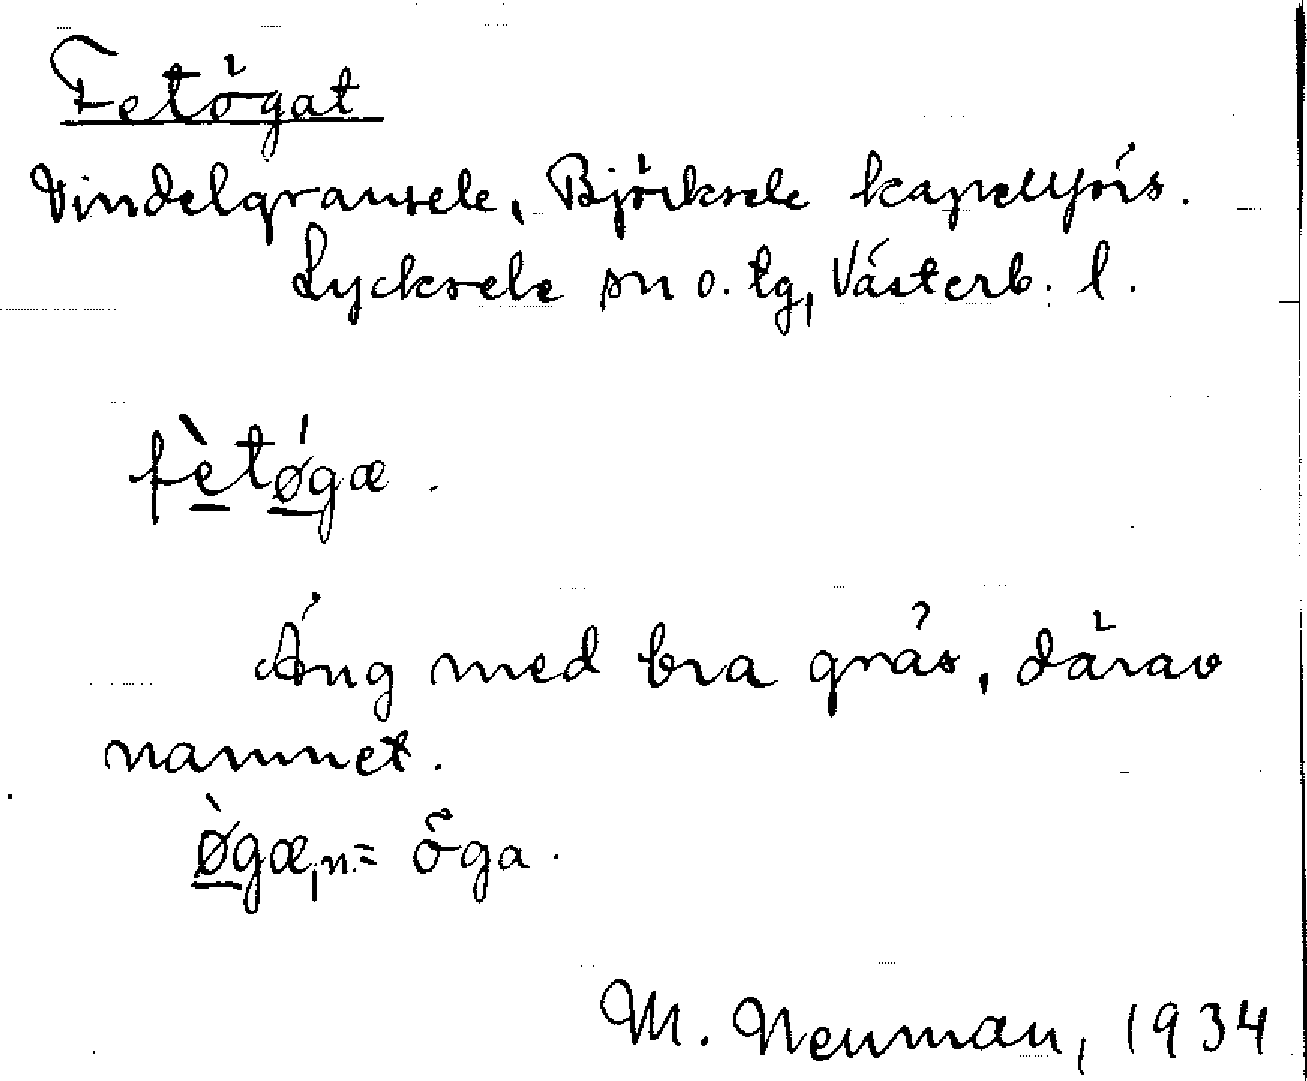 Fetögat
Vindelgransele, Björksele kapellförs.
Lycksele sn o. tg, Västerb. l.
fètǿgæ.
Äng med bra gräs, därav
namnet.
ø̀gæ, n. = öga.
M. Neuman, 1934